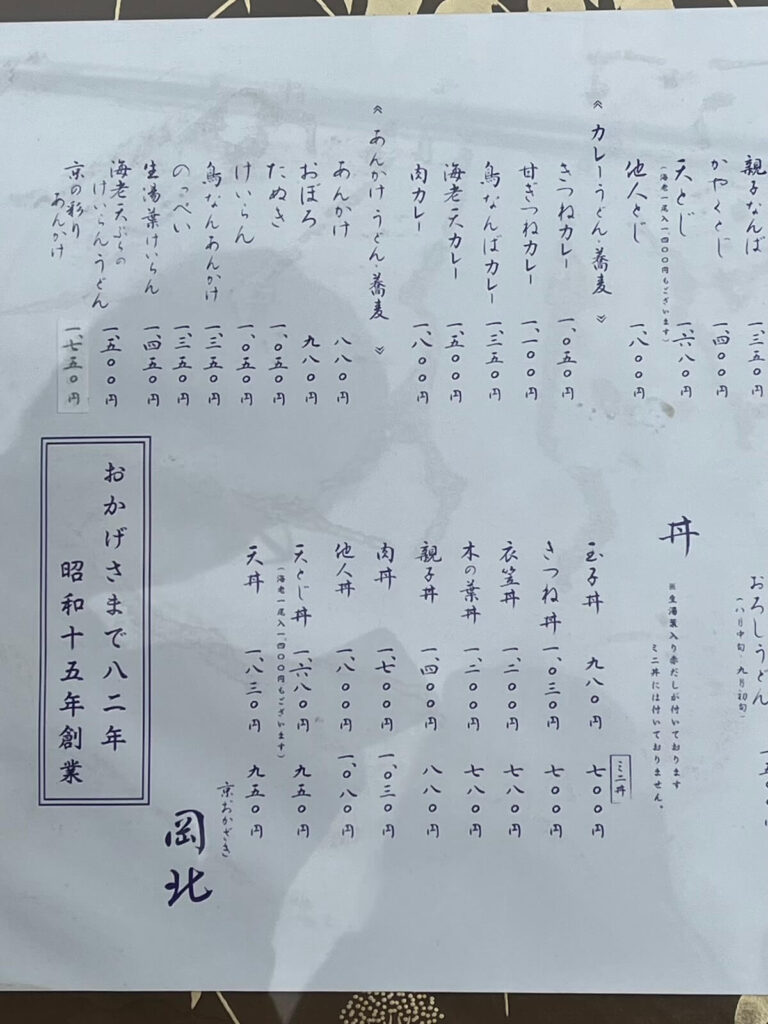 親子なんば 一、三五〇円
かやくとじ 一、四〇〇円
天とじ 一、六八〇円
(海老一尾入一、四〇〇円もございます)
他人とじ 一、八〇〇円
≪ カレーうどん・蕎麦 ≫
きつねカレー 一、〇五〇円
甘ぎつねカレー 一、一〇〇円
鳥なんばカレー 一、三五〇円
海老天カレー 一、五〇〇円
肉カレー 一、八〇〇円
≪ あんかけうどん・蕎麦 ≫
あんかけ 八八〇円
おぼろ 九八〇円
たぬき 一、〇五〇円
けいらん 一、〇五〇円
鳥なんあんかけ 一、三五〇円
のっぺい 一、三五〇円
生湯葉けいらん 一、四五〇円
海老天ぷらの
けいらんうどん 一、五〇〇円
京の彩り
あんかけ 一、七五〇円
おろしうどん
(八月中旬、九月初旬)
丼
※生湯葉入り赤だしが付いております
ミニ丼には付いておりません。
ミニ丼
玉子丼 九八〇円 七〇〇円
きつね丼 一、〇三〇円 七〇〇円
衣笠丼 一、二〇〇円 七八〇円
木の葉丼 一、二〇〇円 七八〇円
親子丼 一、四〇〇円 八八〇円
肉丼 一、七〇〇円 一、〇三〇円
他人丼 一、八〇〇円 一、〇八〇円
天とじ丼 一、六八〇円 九五〇円
(海老一尾入一、四〇〇円もございます)
天丼 一、八三〇円 九五〇円
京おかざき
岡北
おかげさまで八二年
昭和十五年創業